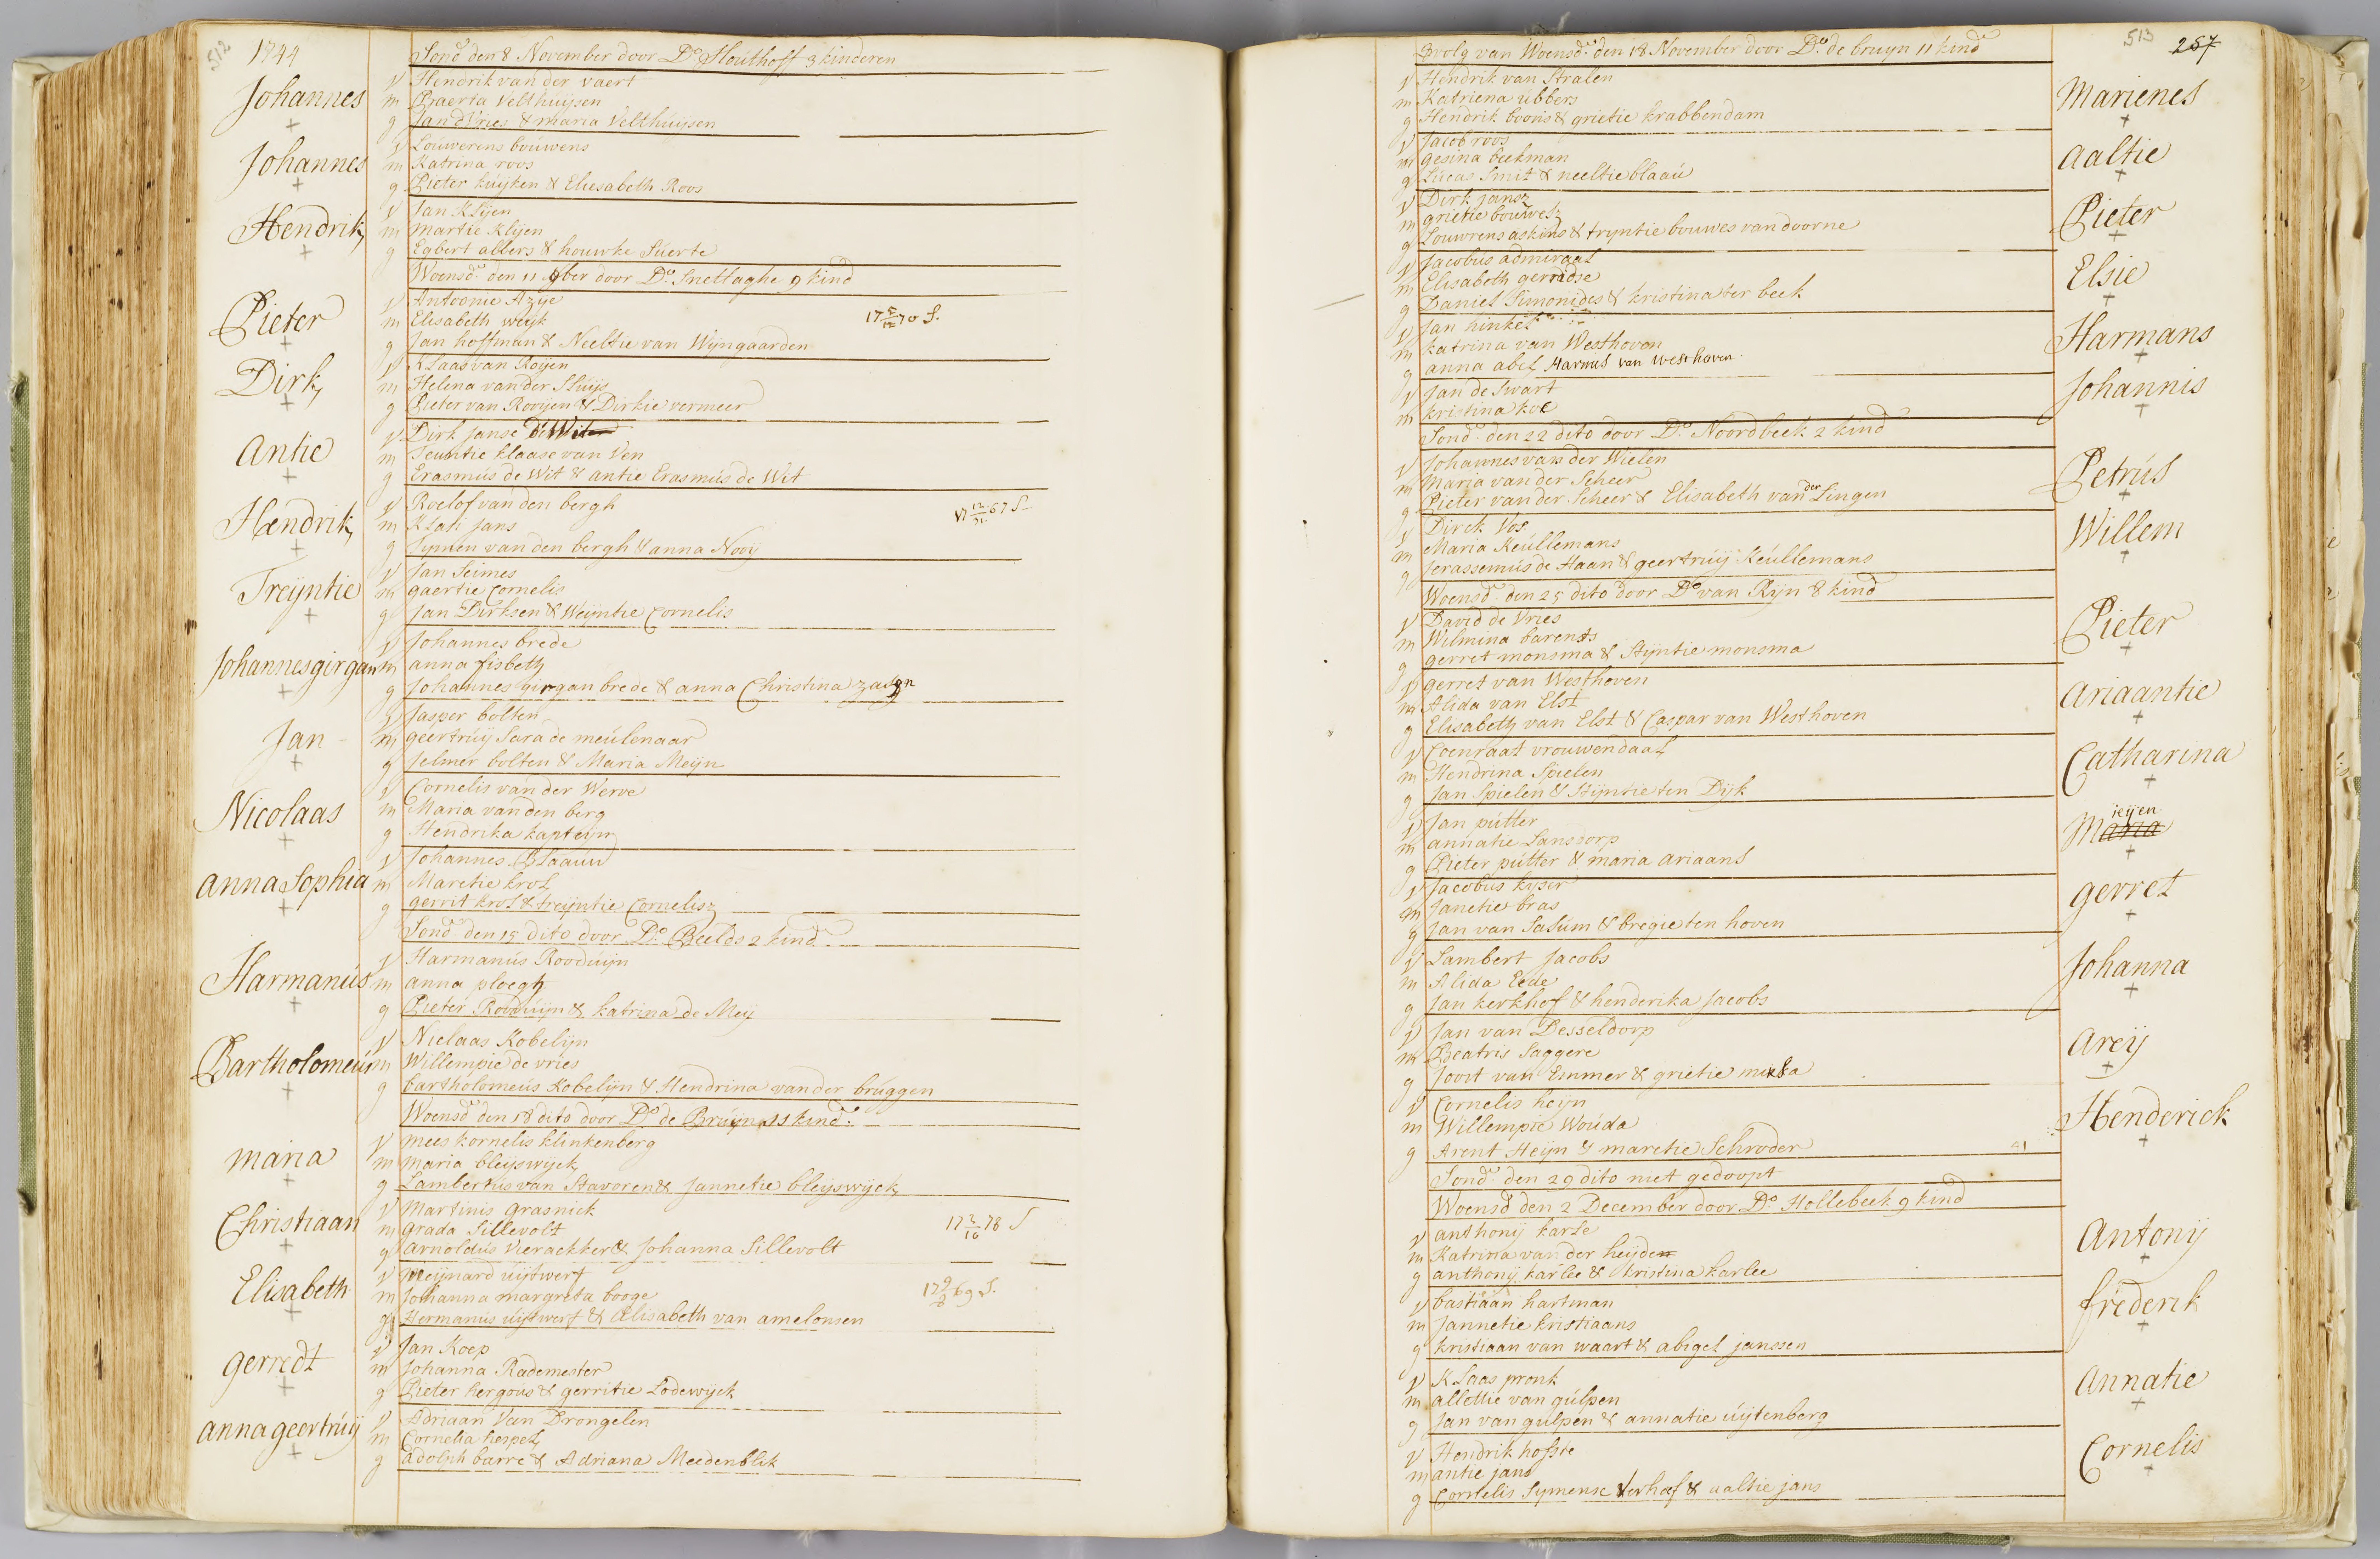 512
1744
Sond. den 8 November door Do. Houthoff 3 kinderen
Johannes
v Hendrik van der vaert
m Praerta Velthuijsen
g Jan d Vries & maria Velthuijsen
Johannes
v Louwerens bouwens
m Katrina roos
g Pieter kuijken & Eliesabeth Roos
Hendrik
v Jan Klijen
m martie Klijen
g Egbert albers & houwke Suerte
Woensd. den 11 9ber door Do. Snellaghe 9 kind
Pieter
v Antoonie Azije
m Elisabeth weijk
g Jan hoffman & Neeltie van Wijngaarden
Dirk
v Klaas van Roijen
m Helena van der Sluijs
g Pieter van Rooijen & Dirkie vermeer
Antie
v Dirk Janse de Wit
m Teuntie klaase van Ven
g Erasmus de Wit & antie Erasmus de Wit
Hendrik
v Roelof van den bergh
m Klati Jans
g Sijmen van den bergh & anna Nooij
Treijntie
v Jan Seimes
m gaertie Cornelis
g Jan Dirksen & Weijntie Cornelis
Johannes girgan
v Johannes brede
m anna fisbeth
g Johannes girgan brede & anna Christina
Jan
v Jasper bolten
m geertruij Sara de meulenaar
g Jelmer bolten & Maria Meijn
Nicolaas
v Cornelis van der Werve
m Maria van den berg
g Hendrika kapteijn
Anna Sophia
v Johannes Blaauw
m Maretie krol
g gerrit krol & treijntie Cornelisz
Sond. den 15 dito door Do. Beelds 2 kind
Harmanus
v Harmanus Rooduijn
m anna ploegh
g Pieter Rooduijn & katrina de Meij
Bartholomeus
v Nielaas Kobelijn
m Willempie de vries
g bartholomeus Kobelijn & Hendrina vander bruggen
Woensd. den 18 dito door Do. de Bruijn 11 kind.
maria
v mees kornelis klinkenberg
m maria bleijswijck
g Lambertus van Stavoren & Jannetie bleijswijck
Christiaan
v Martinis Grasnick
m Grada Sillevolt
g Arnoldus Vierackker & Johanna Sillevolt
Elisabeth
v Meijnard uijtwerf
m Johanna margreta booge
g Hermanus uijtwerf & Elisabeth van amelonsen
gerredt
v Jan Koep
m Johanna Rademester
g Pieter hergous & gerritie Lodewijck
anna geertruij
v Adriaan Van Drongelen
m Cornelia hespel
g Adolph barre & Adriana Meedenblik
513
257
Volg van Woensd. den 18 November door Do. de bruijn 11 kind
v Hendrik van Stralen
Marienes
m Katriena ubbers
g Hendrik boons & grietie krabbendam
v Jacob roos
Aaltie
m gesina beekman
g Lucas Smit & neeltie blaau
v Dirk jansz
Pieter
m grietie bouwesz
g Louwrens askins & trijntie bouwes van doorne
v Jacobus admiraal
Elsie
m Elisabeth gerradse
g Daniel Simonides & kristina ter beek
v Jan hinkel
Harmans
m katrina van Westhoven
g anna abel Harmis van westhoven
v Jan de Swart
Johannis
m kristina koe
Sond. den 22 dito door Do. Noordbeek 2 kind
v Johannes van der Wielen
Petrus
m Maria van der Scheer
g Pieter van der Scheer & Elisabeth van der Lingen
v Dirck Vos
Willem
m Maria Keullemans
g Jerassemus de Haan & geertruij Keullemans
Woensd. den 25 dito door Do. van Rijn 8 kind
v David de Vries
Pieter
m Wilmina barents
g gerret monsma & Stijntie monsma
v gerret van Westhoven
Ariaantie
m Alida van Elst
g Elisabeth van Elst & Caspar van Westhoven
v Coenraat vrouwendaal
Catharina
m Hendrina Spielen
g Jan Spielen & Stijntie ten Dijk
v Jan putter
Maria
m annatie Lansdorp
g Pieter putter & maria ariaans
v Jacobus kijser
gerret
m Janetie bras
g Jan van Sasum & bregie ten hoven
v Lambert Jacobs
Johanna
m Alida Eede
g Jan kerkhof & henderika Jacobs
v Jan van Desseldorp
Areij
m Beatris Saggere
g Joost van Emmer & grietie
v Cornelis heijn
Henderick
m Willempie Wouda
g Arent Heijn & maretie Schroder
Sond. den 29 dito niet gedoopt
Woensd. den 2 December door Do. Hollebeek 9 kind
v anthonij karle
Antonij
m Katrina van der heijden
g anthonij karlee & kristina karlee
v bastiaan hartman
frederik
m Jannetie kristiaans
g kristiaan van waart & abigel janssen
v Klaas pronk
Annatie
m allettie van gulpen
g Jan van gulpen & annatie uijtenberg
v Hendrik hofste
Cornelis
m antie jans
g Cornelis Sijmense Verhoef & aaltie jans